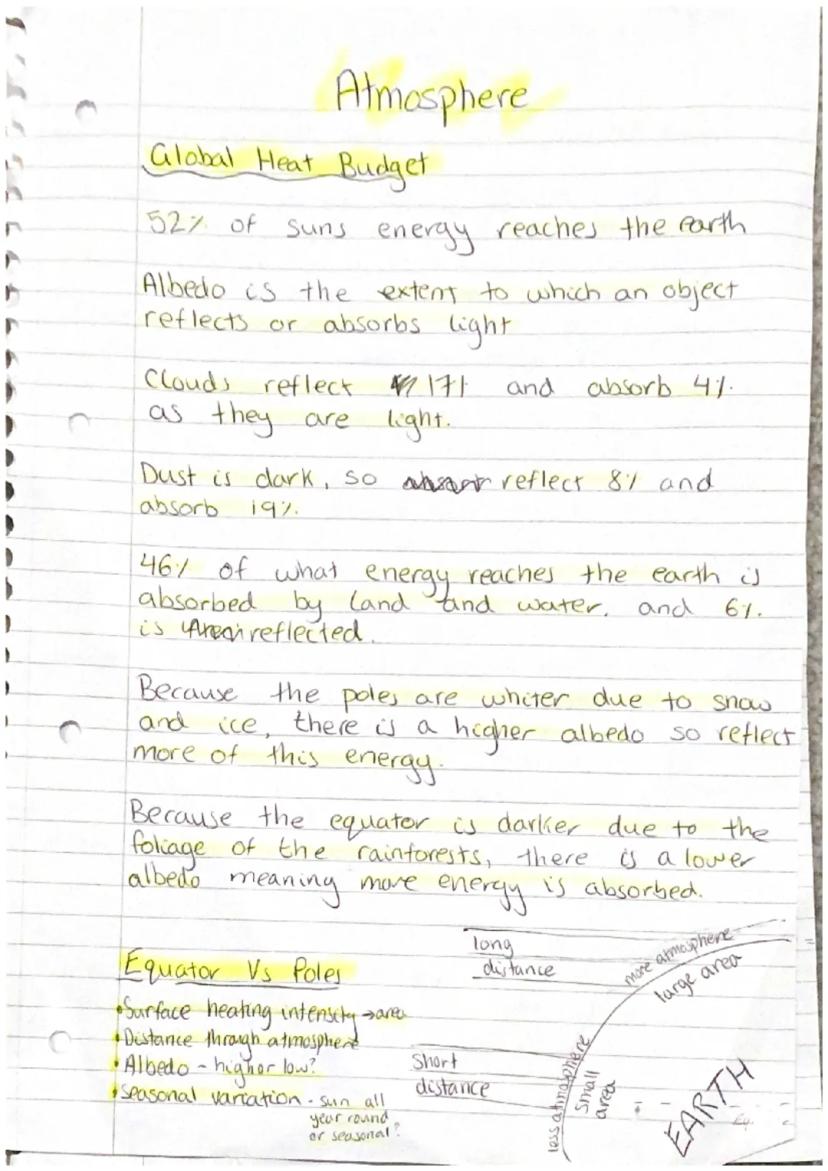 Atmosphere
Global Heat Budget
52% of suns energy reaches the earth
Albedo is the extent to which an object
reflects or absorbs light
Clouds reflect 17% and absorb 4%
as they are light.
Dust is dark, so reflect 8% and
absorb 19%.
46% of what energy reaches the earth is
absorbed by land and water, and 6%
is reflected.
Because the poles are whiter due to snow
and ice, there is a higher albedo so reflect
more of this energy.
Because the equator is darker due to the
foliage of the rainforests, there is a lower
albedo meaning more energy is absorbed.
Equator Vs Poles
•Surface heating intensity → area
•Distance through atmosphere
•Albedo - high or low?
•Seasonal variation - sun all
year round
or seasonal?
long
distance
more atmosphere
large area
Short
distance
less atmosphere
small
area
EARTH